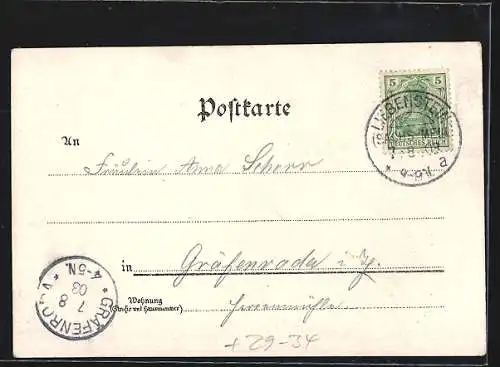 5 5
LIEBENSTEIN
DEUTSCHES REICH
a
Postkarte
An
Fräulein Anna Schorr
in Gräfenroda i. Th.
Wohnung
(Straße und Hausnummer)
Herrenmühle
GRÄFENRODA
7 8
03
4-5N.
+29-34